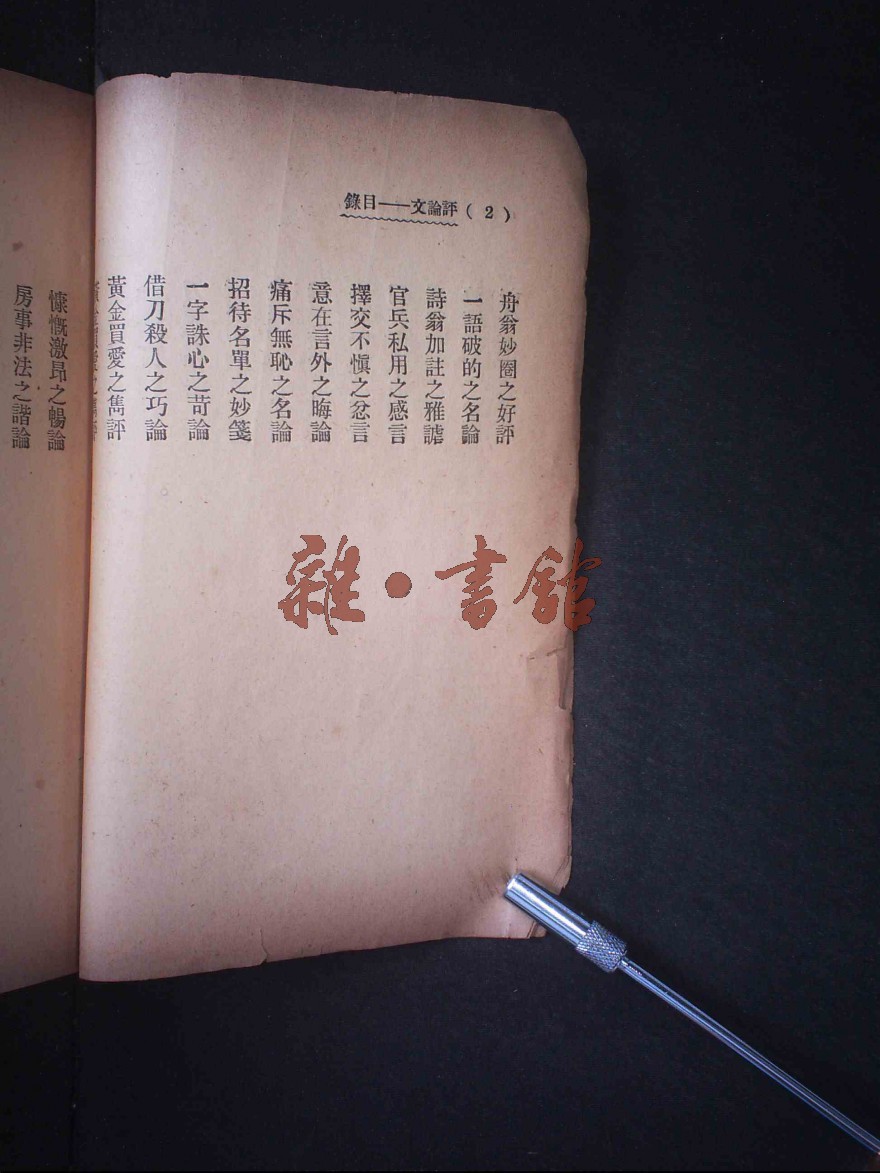 (2) 評論文——目錄
舟翁妙圈之好評
一語破的之名論
詩翁加註之雅謔
官兵私用之感言
擇交不愼之忿言
意在言外之晦論
痛斥無恥之名論
招待名單之妙箋
一字誅心之苛論
借刀殺人之巧論
黃金買愛之雋評
慷慨激昂之暢論
房事非法之諧論
雜·書館